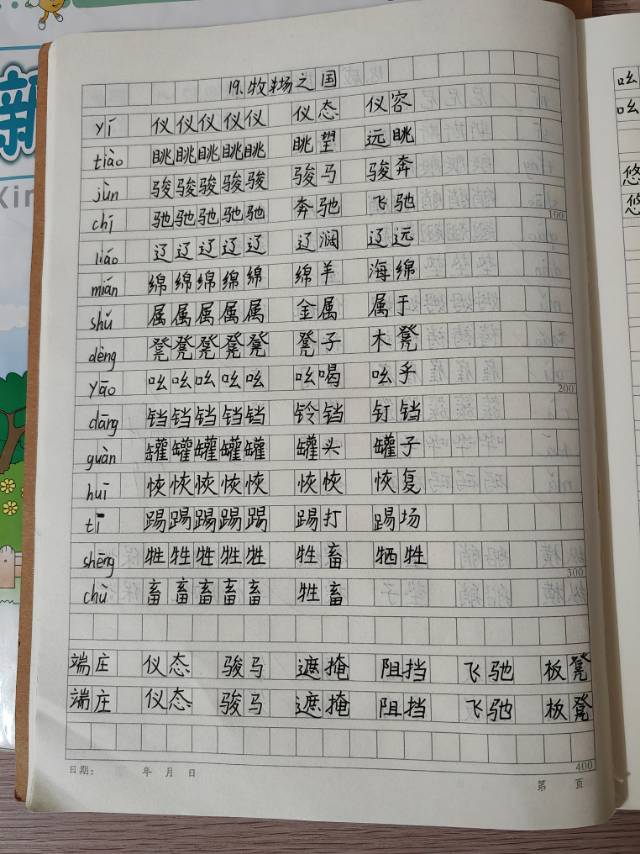 新
Xin
19、牧场之国
yí 仪仪仪仪仪 仪态 仪容
tiào 眺眺眺眺眺 眺望 远眺
jùn 骏骏骏骏骏 骏马 骏奔
chí 驰驰驰驰驰 奔驰 飞驰
liáo 辽辽辽辽辽 辽阔 辽远
100
mián 绵绵绵绵绵 绵羊 海绵
shǔ 属属属属属 金属 属于
dèng 凳凳凳凳凳 凳子 木凳
yāo 吆吆吆吆吆 吆喝 吆乎
200
dāng 铛铛铛铛铛 铃铛 钉铛
guàn 罐罐罐罐罐 罐头 罐子
huī 恢恢恢恢恢 恢恢 恢复
tī 踢踢踢踢踢 踢打 踢场
shēng 牲牲牲牲牲 牲畜 牺牲
300
chù 畜畜畜畜畜 牲畜
端庄 仪态 骏马 遮掩 阻挡 飞驰 板凳
端庄 仪态 骏马 遮掩 阻挡 飞驰 板凳
400
日期： 年 月 日 第 页
吆
吆
悠
悠